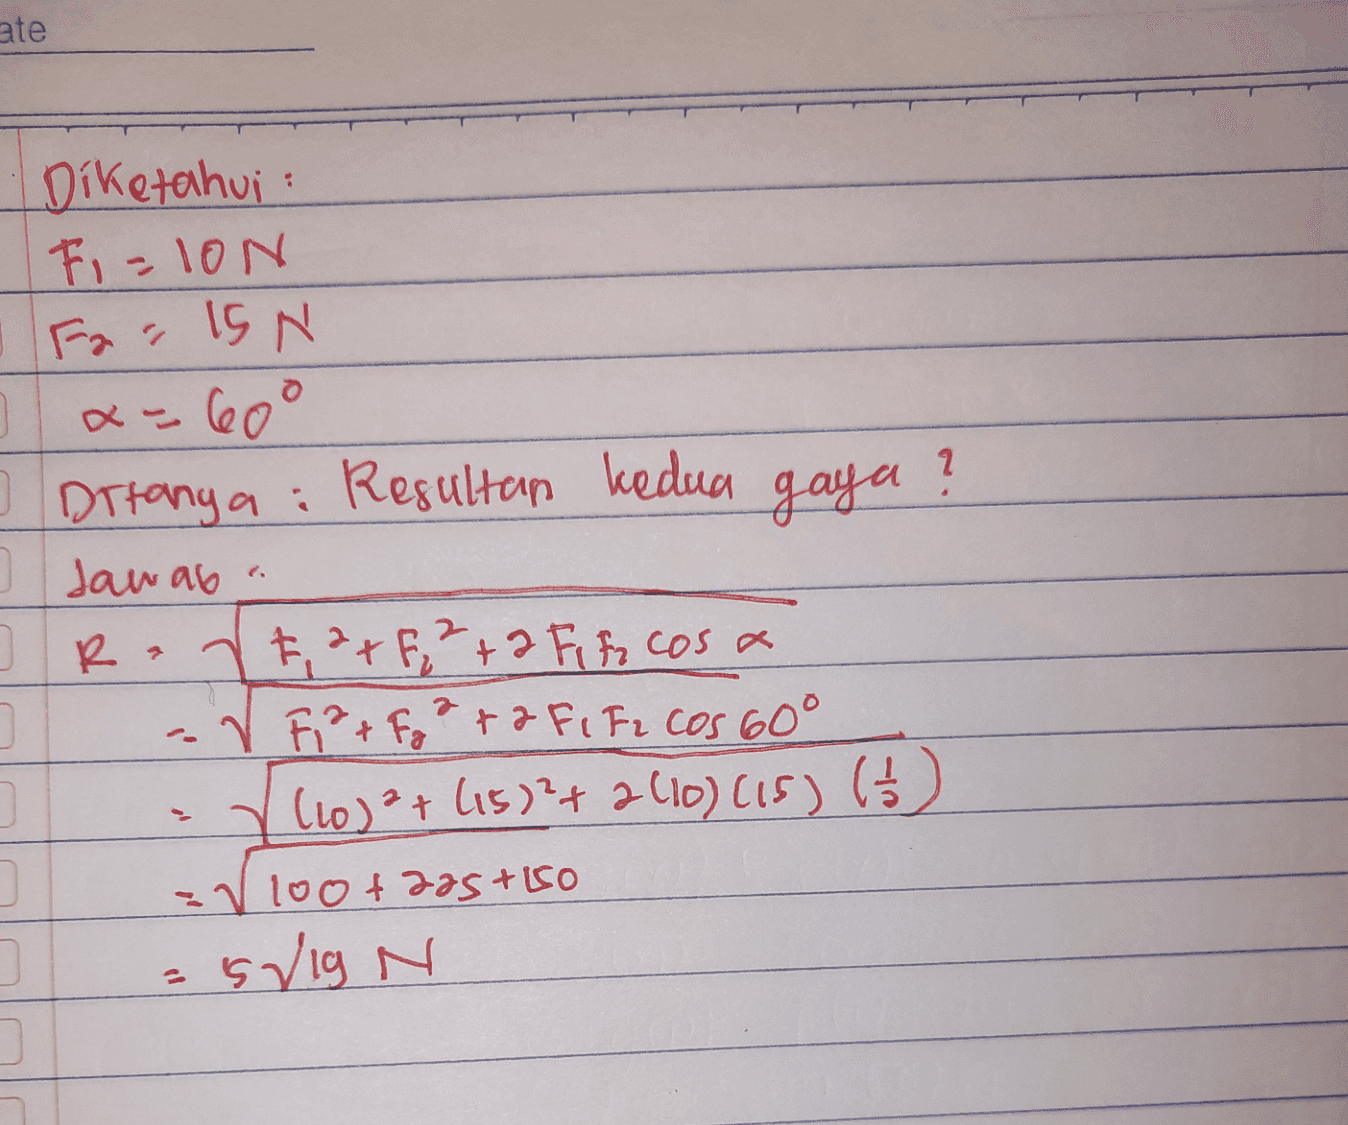 ate
Diketahui :
F₁ = 10 N
F₂ = 15 N
α = 60°
Ditanya : Resultan kedua gaya ?
Jawab :
R = √F₁² + F₂² + 2 F₁ F₂ cos α
= √F₁² + F₂² + 2 F₁ F₂ cos 60°
= √(10)² + (15)² + 2 (10) (15) (1/2)
= √100 + 225 + 150
= 5√19 N